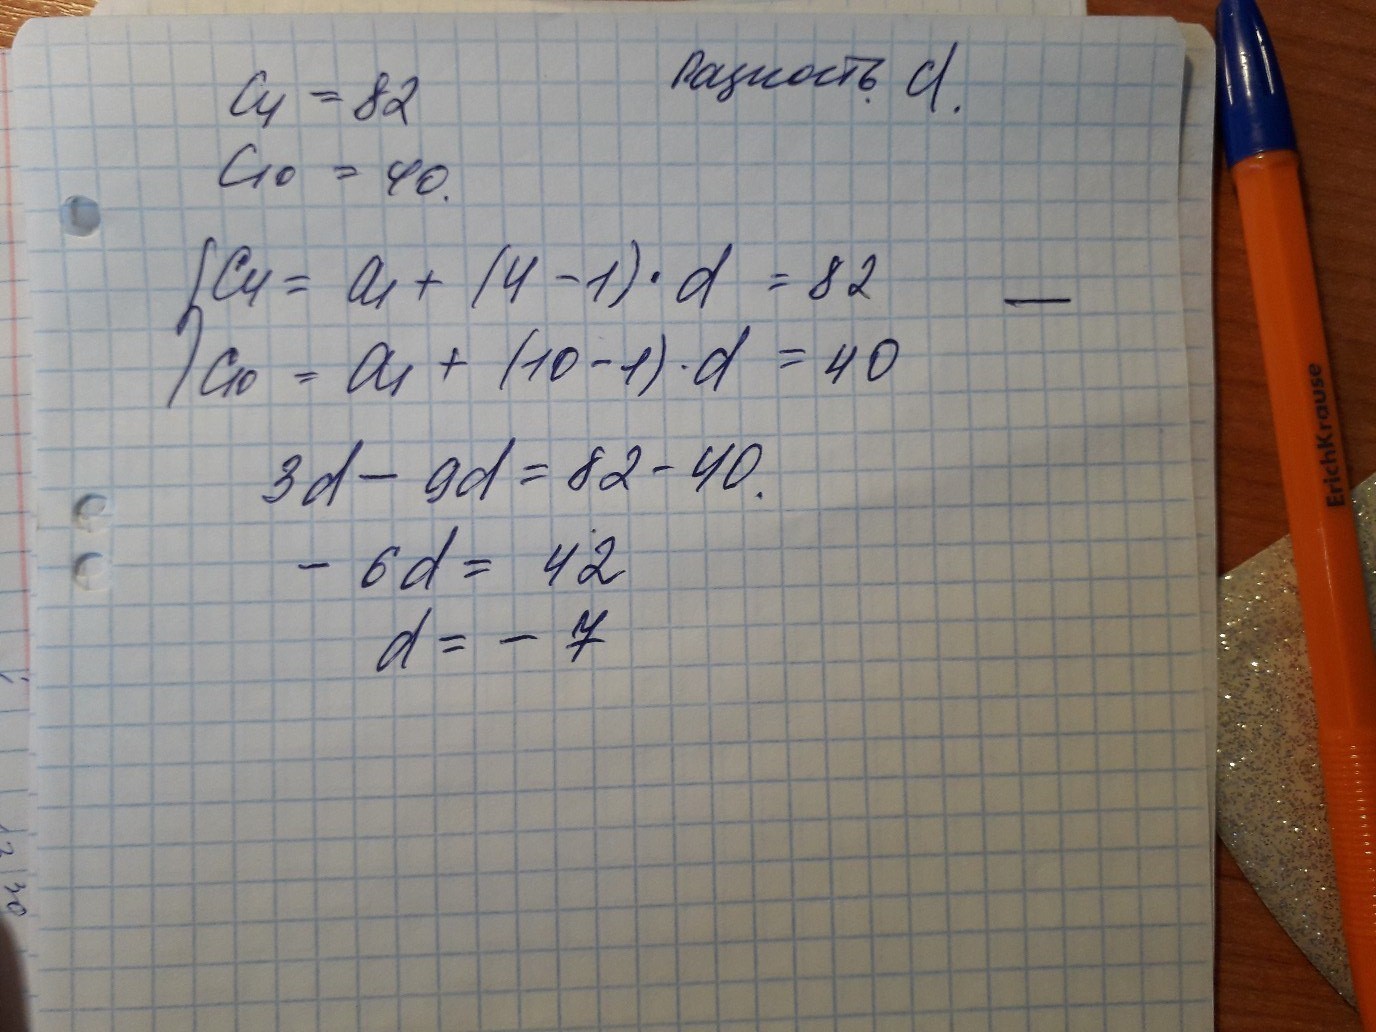 C₄ = 82
Разность d.
C₁₀ = 40.
C₄ = a₁ + (4 - 1) · d = 82 —
C₁₀ = a₁ + (10 - 1) · d = 40
3d - 9d = 82 - 40.
- 6d = 42
d = - 7
ErichKrause